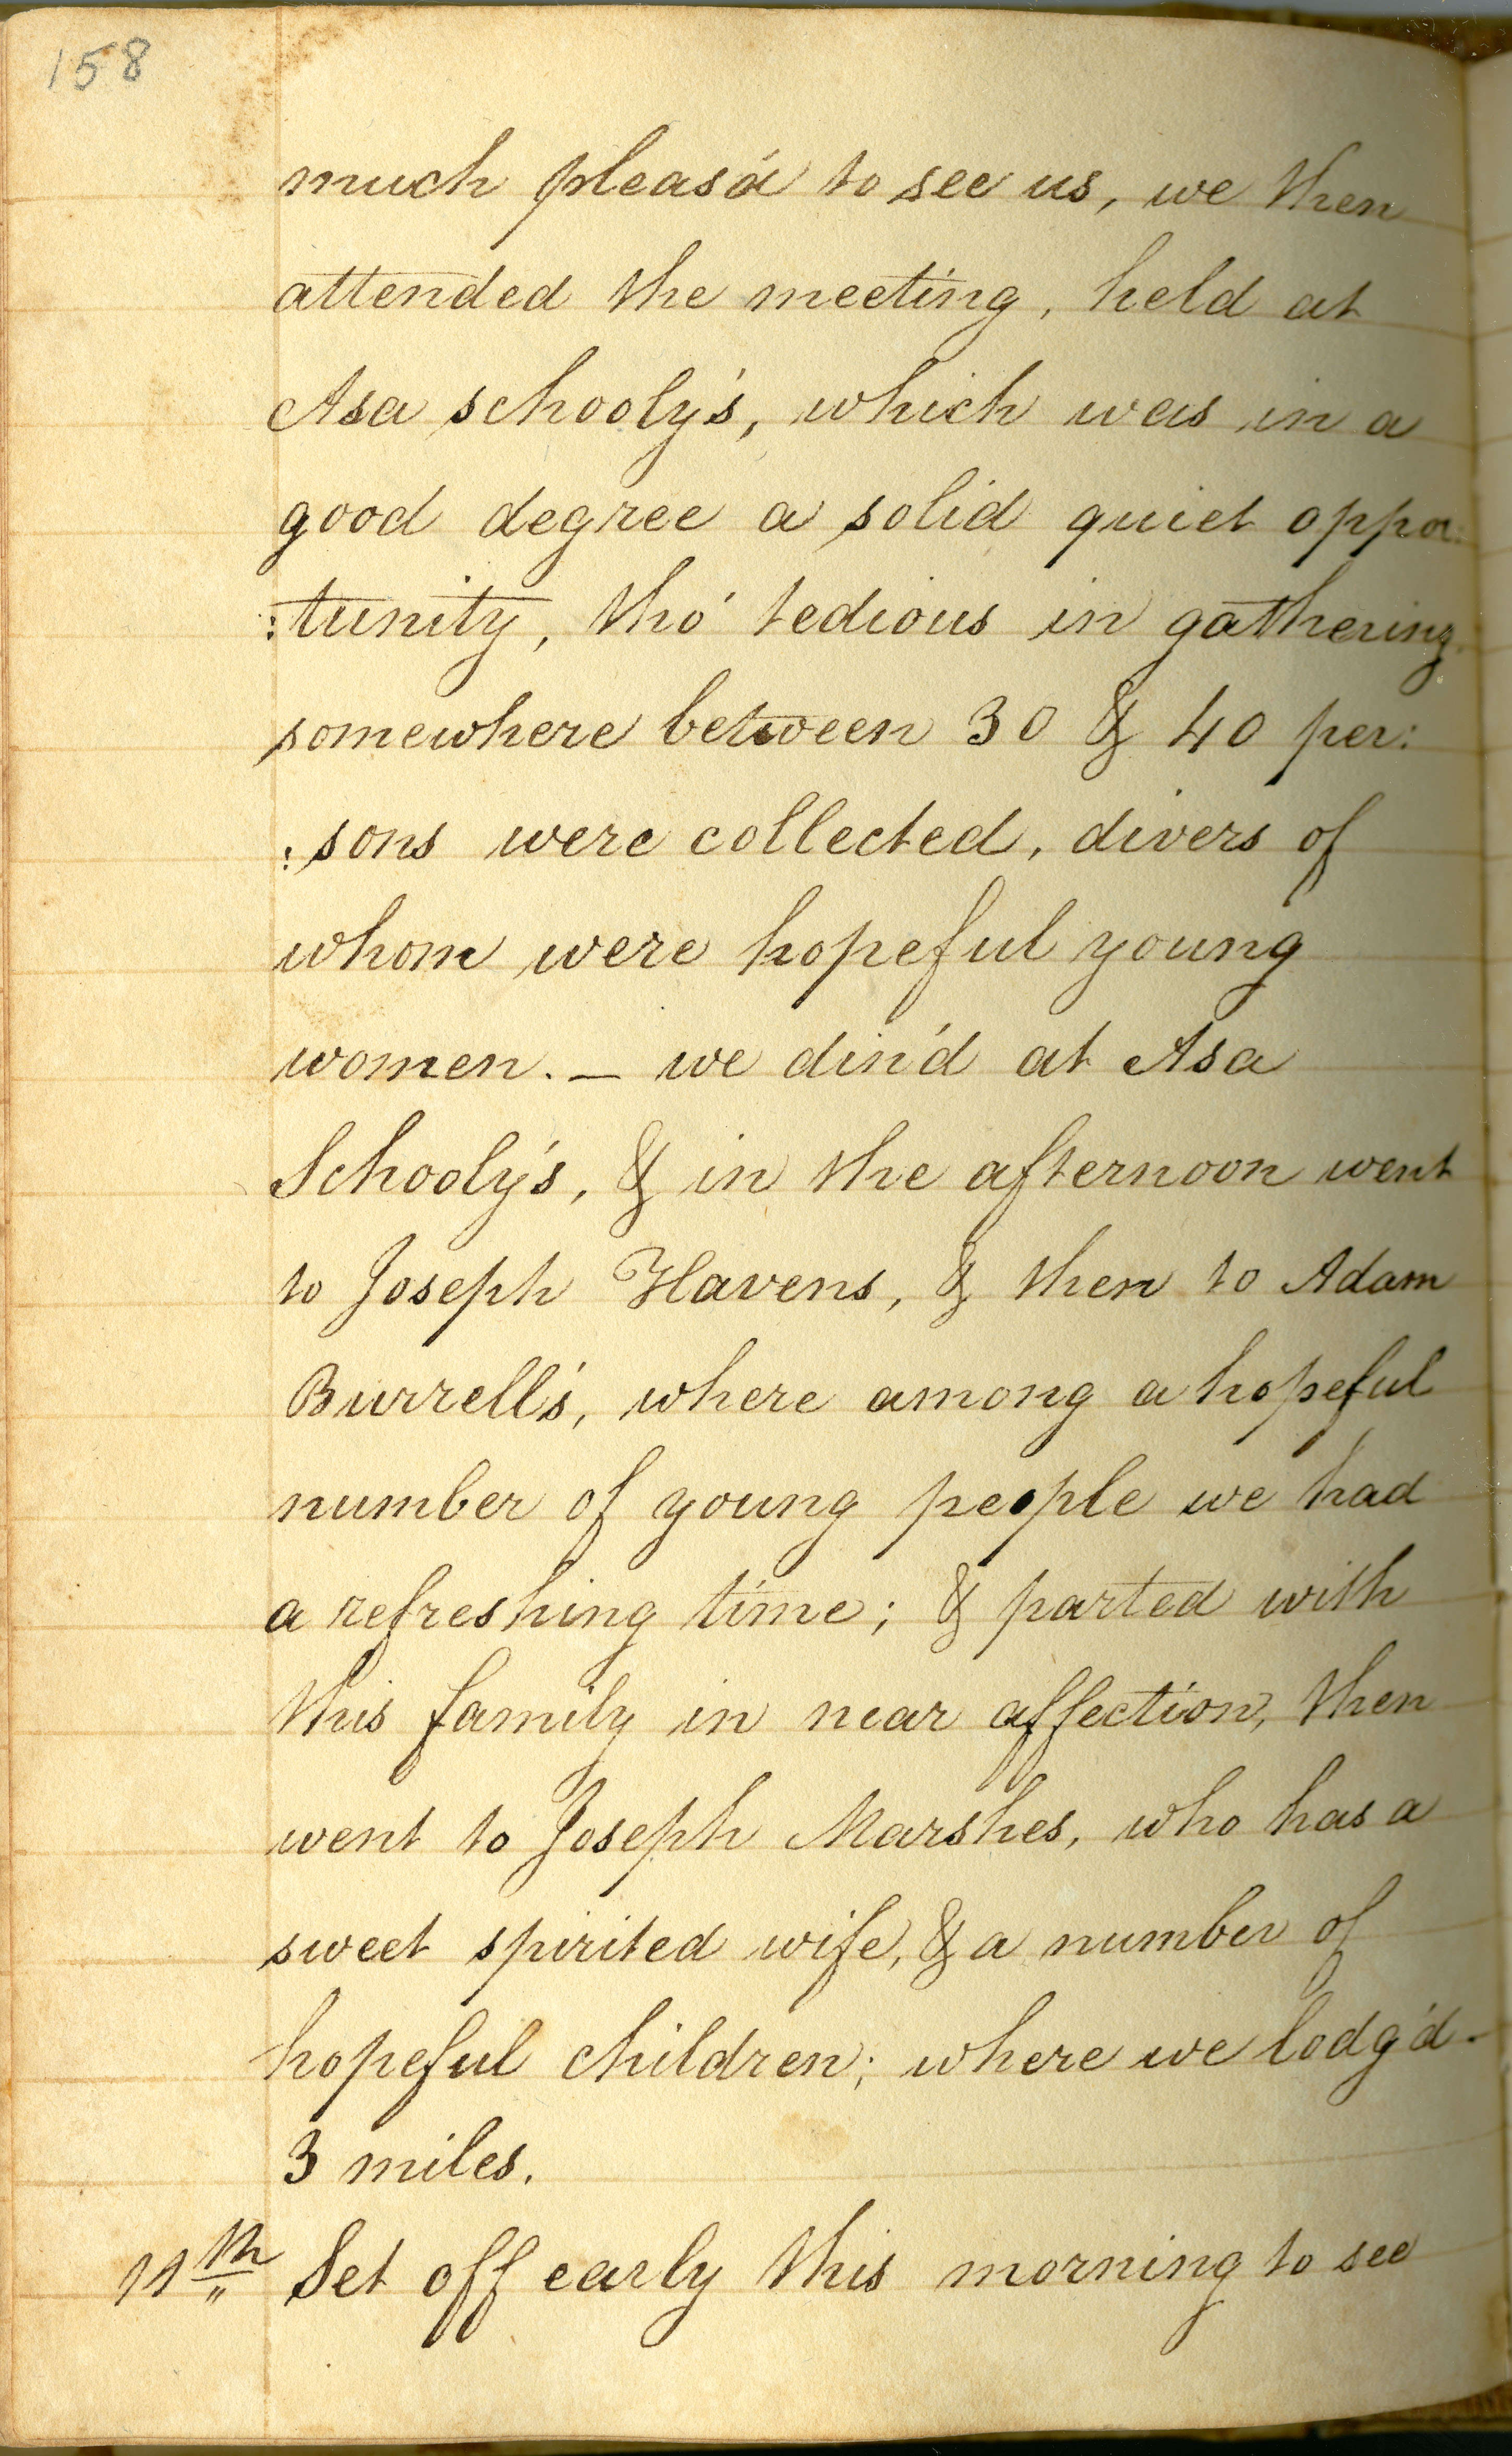 158
much pleas'd to see us, we then
attended the meeting, held at
Asa schooly's, which was in a
good degree a solid quiet oppor:
:tunity, tho' tedious in gathering.
somewhere between 30 & 40 per:
:sons were collected, divers of
whom were hopeful young
women. _ we din'd at Asa
Schooly's, & in the afternoon went
to Joseph Havens, & then to Adam
Burrell's, where among a hopeful
number of young people we had
a refreshing time; & parted with
this family in near affection, then
went to Joseph Marshes, who has a
sweet spirited wife, & a number of
hopeful children; where we lodg'd -
3 miles.
11th Set off early this morning to see